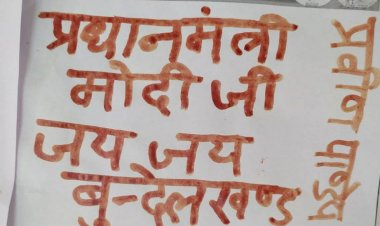 प्रधानमंत्री
मोदी जी
जय जय
बुन्देलखण्ड
प्रवीण पाण्डेय